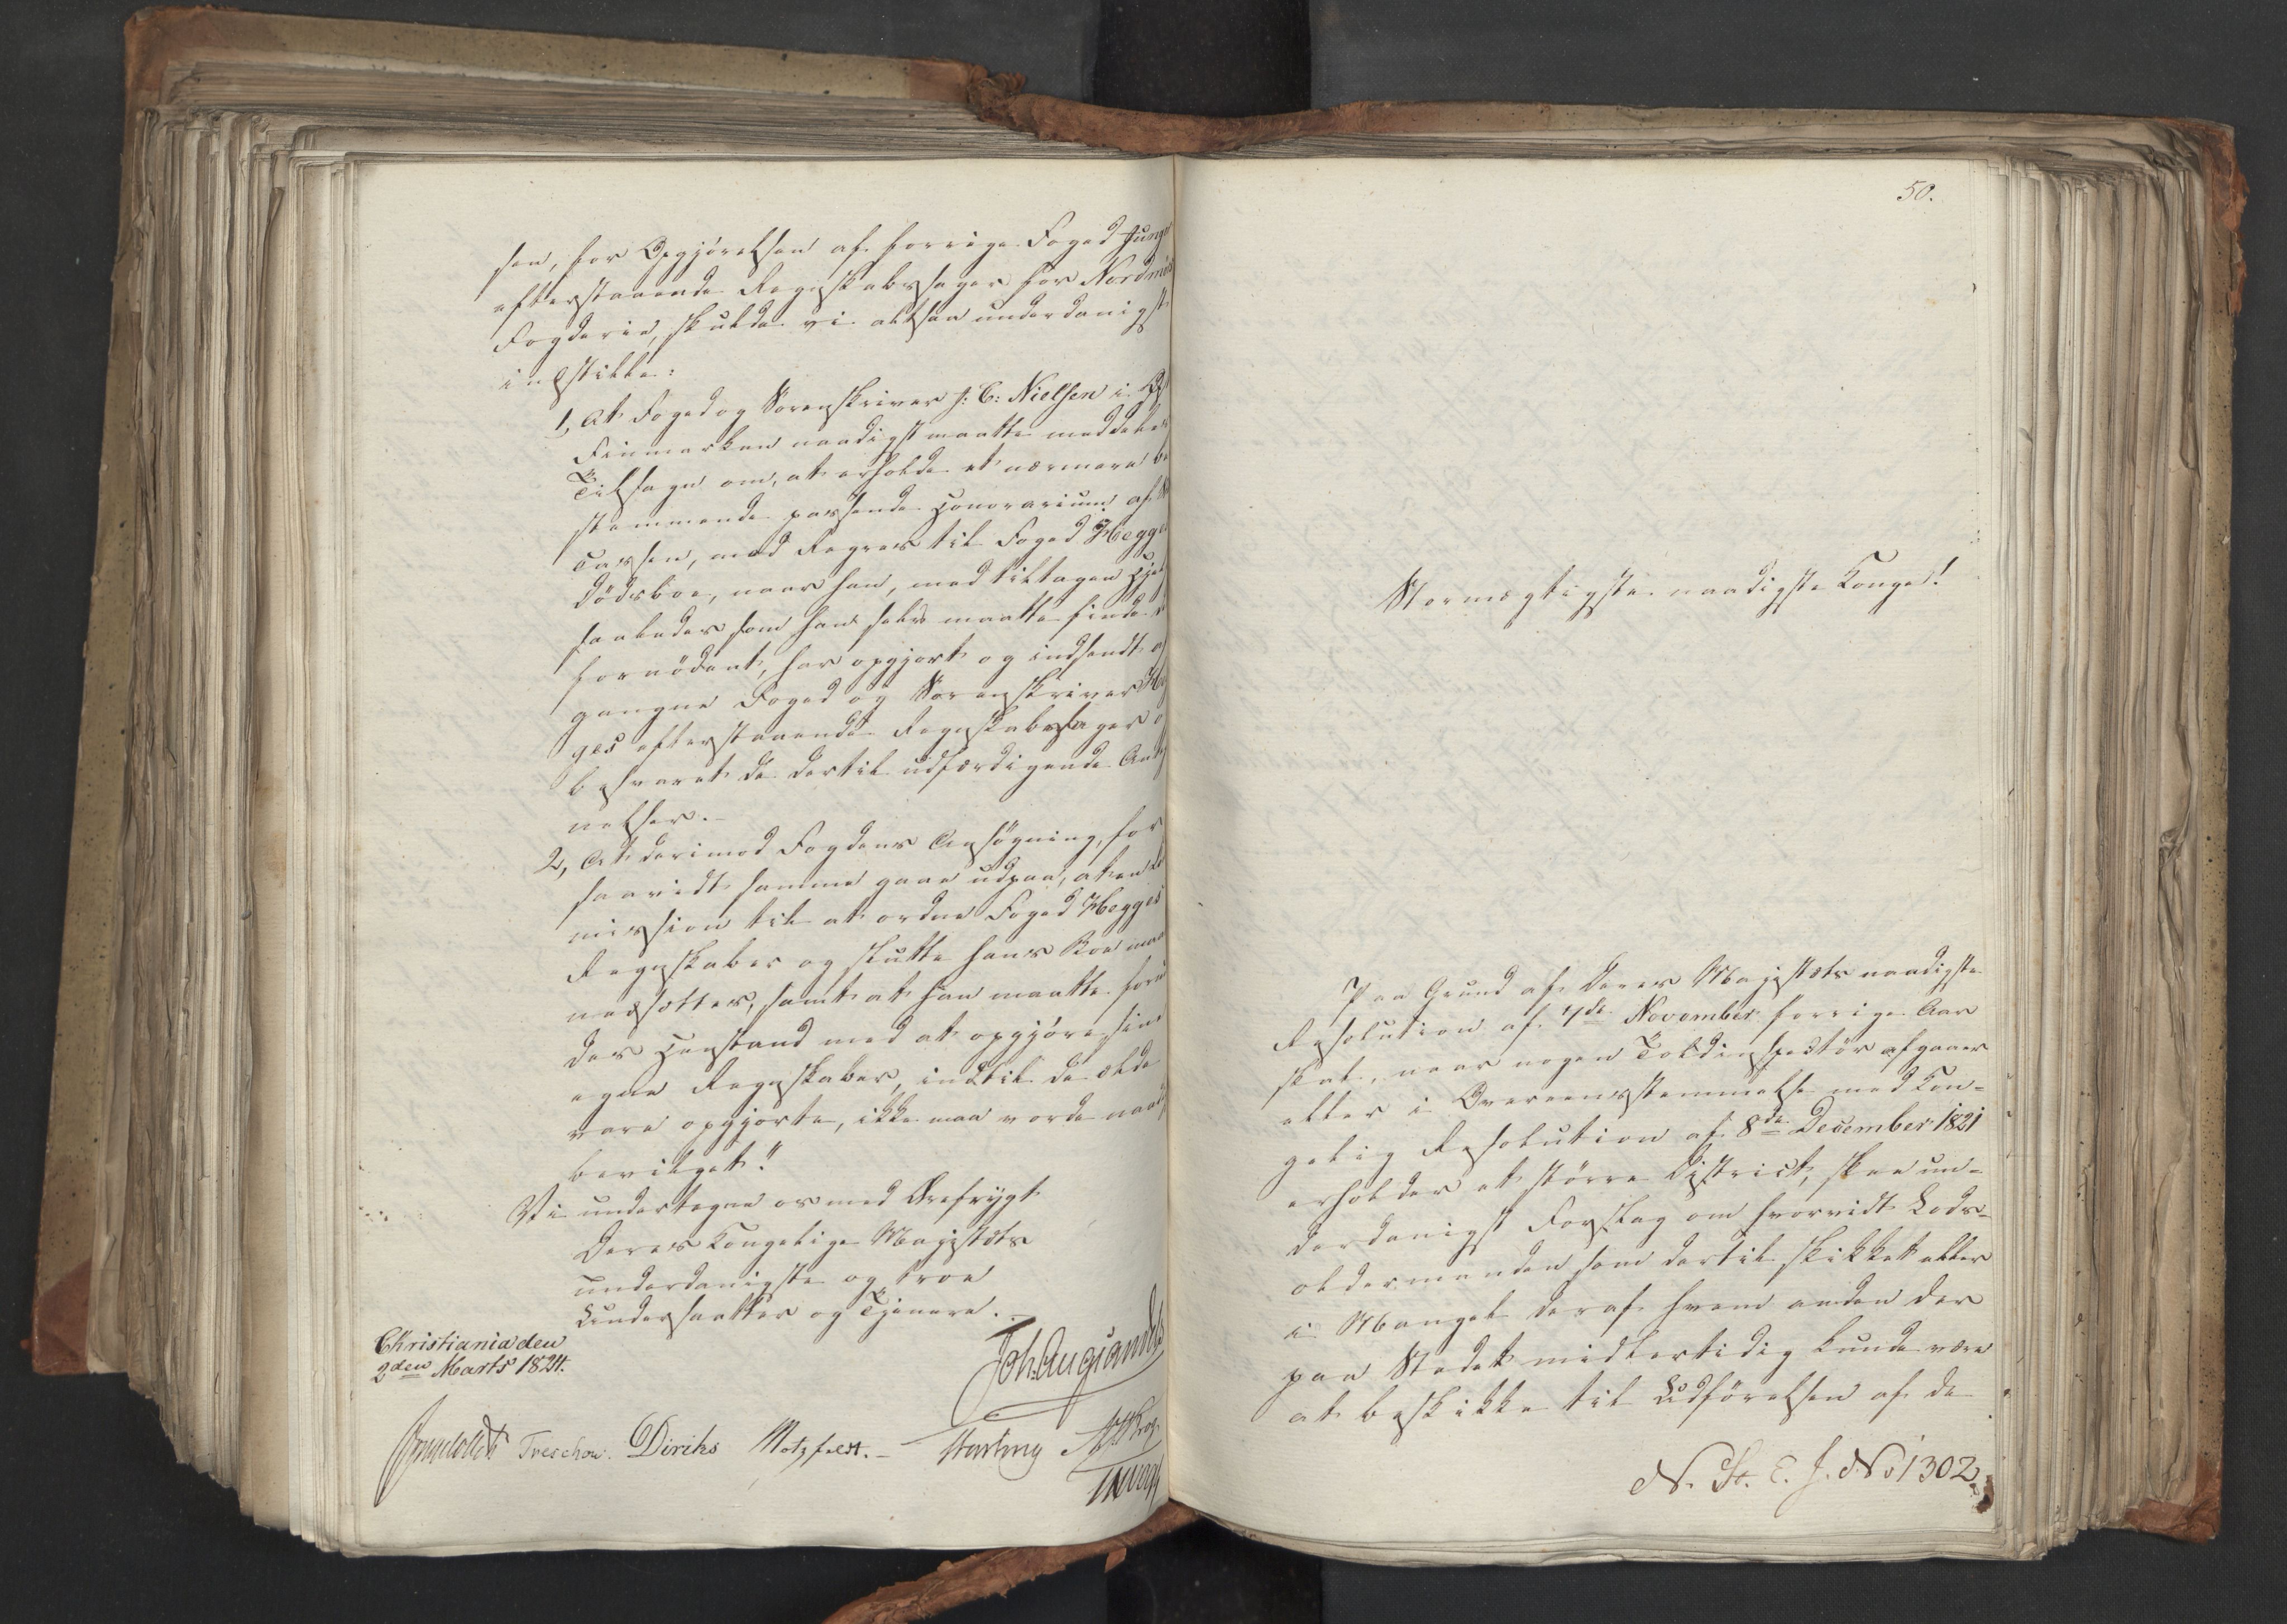 sen, for Opgjørelsen af forrige Foged Jung
efterstaaende Regnskabssager for Nordmör
Fogderie, skulde vi altsaa underdanigst
indstille:
1, At Foged og Sorenskriver J: C: Nielsen i Øst
Finmarken naadigst maatte meddeles
Tilsagn om, at erholde et nærmere be
stemmende passende Honorarium af
Cassen, med Regres til Foged Hegges
Dödsboe, naar han, med tiltagen Hjelp
saaledes som han selv maatte finde
fornödent, har opgjort og indsendt af
gangne Foged og Sorenskriver Heg
ges efterstaaende Regnskabssager og
besvaret de dertil udfærdigende Ant
nelser.
2, At derimod Fogdens Ansögning, for
saavidt samme gaaer udpaa, at en Com
mission til at ordne Foged Hegges
Regnskaber og slutte hans Boe maa
nedsættes, samt at han maatte forun
des Henstand med at opgjöre sine
egne Regnskaber, indtil de ældre
vare opgjorte, ikke maa vorde naadigst
bevilget."
Vi undertegne os med Ærefrygt
Deres Kongelige Majestæts
underdanigste og troe
Undersaatter og Tjenere.
Christiania den
2den Marts 1824.
Joh: Aug: Sandels
Treschow. Diriks Motzfeldt. Krog
50.
Stormægtigste naadigste Konge!
Paa Grund af Deres Majestæts naadigste
Resolution af 7de November forrige Aar
skal, naar nogen Toldinspectör afgaaer
eller i Overeensstemmelse med Kon-
gelig Resolution af 8de December 1821
erholder et större District, skee un-
derdanigst Forslag om hvorvidt Lods-
oldermanden som dertil skikket eller
i Mangel deraf hvem anden der
paa Stedet midlertidig kunde være
at beskikke til Udförelsen af de
N. St. E. J. No 1302.